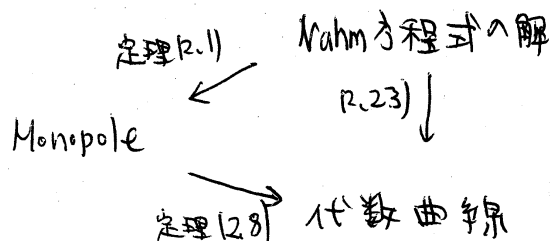 定理(2.1)
Nahm方程式の解
(2.23)
Monopole
定理(2.8)
代数曲線